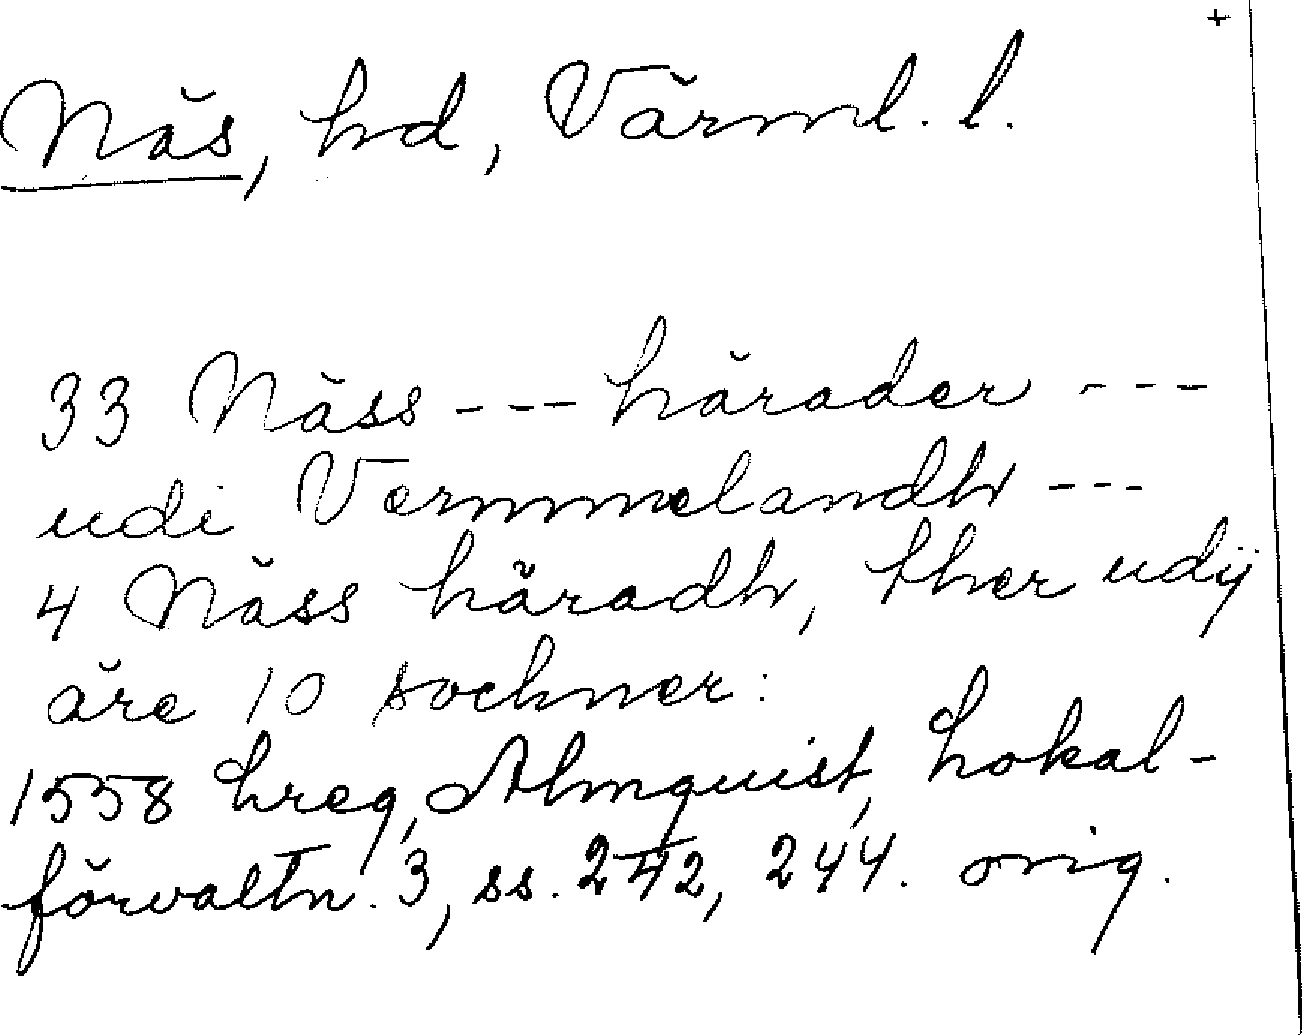 +
Näs, hd, Värml. l.
33 Näss --- härader ---
udi Vermmelandh ---
4 Näss häradh, ther udÿ
äre 10 sochner:
1558 hreg, Almquist, Lokal-
förvaltn. 3, ss. 242, 244. orig.